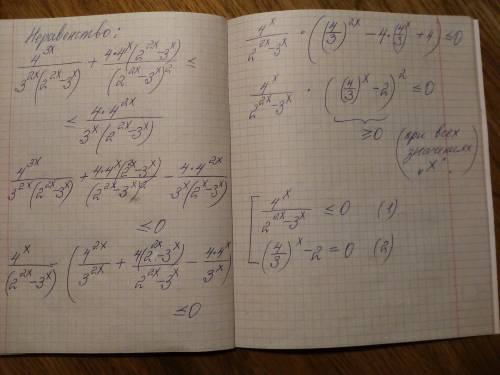 Неравенство:
4^{3x}/(3^{2x}(2^{2x}-3^x)) + 4·4^x(2^{2x}-3^x)/(2^{2x}-3^x)^2 ≤
≤ 4·4^{2x}/(3^x(2^{2x}-3^x))
4^{3x}/(3^{2x}(2^{2x}-3^x)) + 4·4^x(2^{2x}-3^x)/(2^{2x}-3^x)^2 - 4·4^{2x}/(3^x(2^{2x}-3^x))
≤0
4^x/(2^{2x}-3^x) (4^{2x}/3^{2x} + 4(2^{2x}-3^x)/(2^{2x}-3^x) - 4·4^x/3^x)
≤0
4^x/(2^{2x}-3^x) · ((4/3)^{2x} - 4·(4/3)^x + 4) ≤0
4^x/(2^{2x}-3^x) · ((4/3)^x - 2)^2 ≤0
≥0 (при всех
значениях
„x")
[ 4^x/(2^{2x}-3^x) ≤0 (1)
(4/3)^x - 2 = 0 (2)